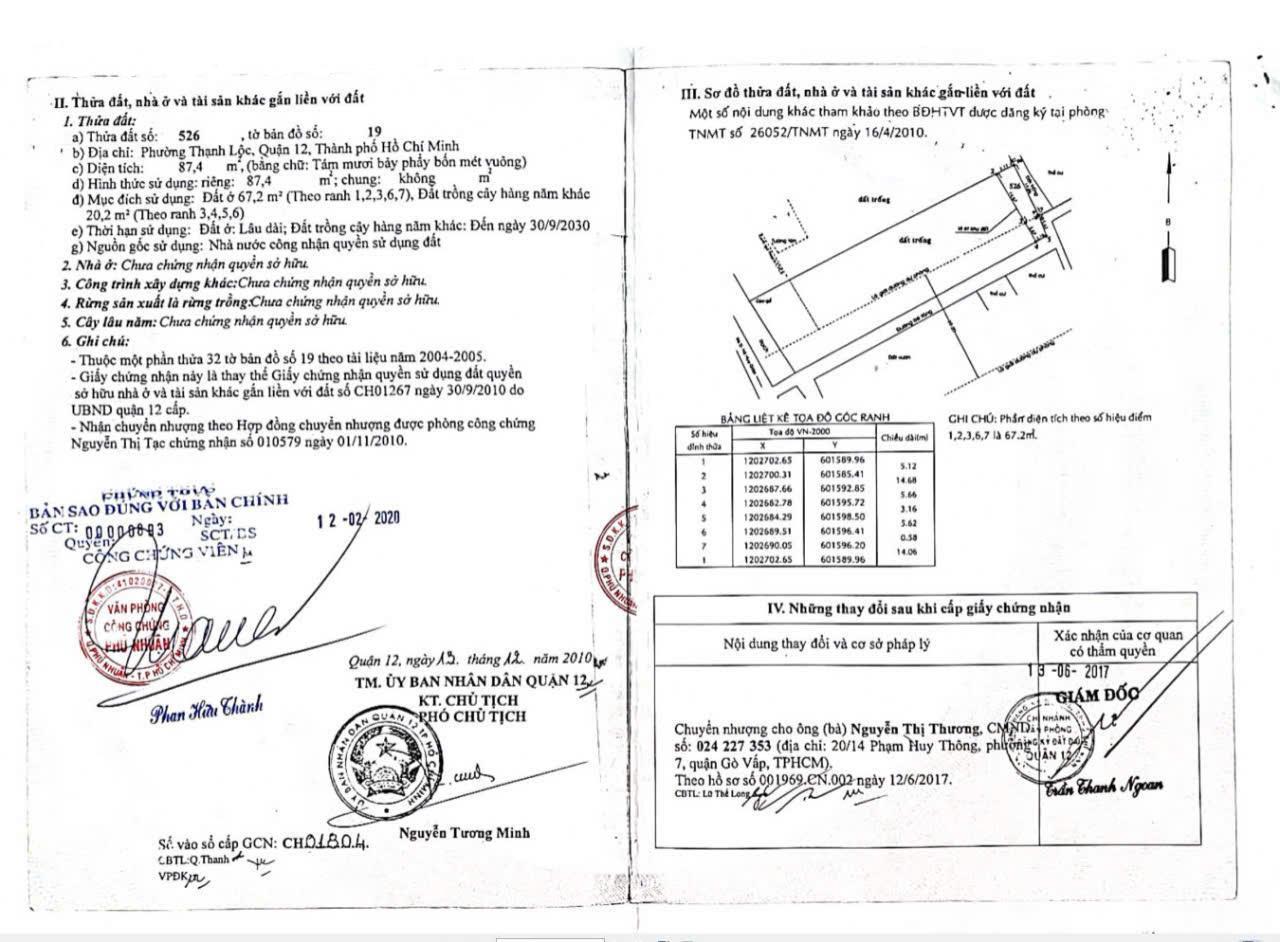 II. Thửa đất, nhà ở và tài sản khác gắn liền với đất
1. Thửa đất:
a) Thửa đất số: 526 , tờ bản đồ số: 19
b) Địa chỉ: Phường Thạnh Lộc, Quận 12, Thành phố Hồ Chí Minh
c) Diện tích: 87,4 m², (bằng chữ: Tám mươi bảy phẩy bốn mét vuông)
d) Hình thức sử dụng: riêng: 87,4 m²; chung: không m²
đ) Mục đích sử dụng: Đất ở 67,2 m² (Theo ranh 1,2,3,6,7), Đất trồng cây hàng năm khác
20,2 m² (Theo ranh 3,4,5,6)
e) Thời hạn sử dụng: Đất ở: Lâu dài; Đất trồng cây hàng năm khác: Đến ngày 30/9/2030
g) Nguồn gốc sử dụng: Nhà nước công nhận quyền sử dụng đất
2. Nhà ở: Chưa chứng nhận quyền sở hữu.
3. Công trình xây dựng khác:Chưa chứng nhận quyền sở hữu.
4. Rừng sản xuất là rừng trồng:Chưa chứng nhận quyền sở hữu.
5. Cây lâu năm: Chưa chứng nhận quyền sở hữu.
6. Ghi chú:
- Thuộc một phần thửa 32 tờ bản đồ số 19 theo tài liệu năm 2004-2005.
- Giấy chứng nhận này là thay thế Giấy chứng nhận quyền sử dụng đất quyền
sở hữu nhà ở và tài sản khác gắn liền với đất số CH01267 ngày 30/9/2010 do
UBND quận 12 cấp.
- Nhận chuyển nhượng theo Hợp đồng chuyển nhượng được phòng công chứng
Nguyễn Thị Tạc chứng nhận số 010579 ngày 01/11/2010.
CHỨNG THỰC
BẢN SAO ĐÚNG VỚI BẢN CHÍNH
Số CT: Ngày: 12-02-2020
Quyển: SCT/BS
CÔNG CHỨNG VIÊN
VĂN PHÒNG
CÔNG CHỨNG
PHÚ NHUẬN
Q.PHÚ NHUẬN - T.P HỒ CHÍ MINH
Phan Hữu Thành
Quận 12, ngày 13. tháng 12. năm 2010
TM. ỦY BAN NHÂN DÂN QUẬN 12
KT. CHỦ TỊCH
PHÓ CHỦ TỊCH
ỦY BAN NHÂN DÂN QUẬN 12 TP HỒ CHÍ MINH
Nguyễn Tương Minh
Số vào sổ cấp GCN: CH01804.
CBTL:Q.Thanh
VPĐK
III. Sơ đồ thửa đất, nhà ở và tài sản khác gắn liền với đất
Một số nội dung khác tham khảo theo BĐHTVT được đăng ký tại phòng
TNMT số 26052/TNMT ngày 16/4/2010.
đất trống
526
đất trống
Lộ giới đường dự phóng
Đường bê tông
Đất vườn
Lộ giới đường dự phóng
B
BẢNG LIỆT KÊ TỌA ĐỘ GÓC RANH
Số hiệu đỉnh thửa Tọa độ VN-2000 Chiều dài(m)
X Y
1 1202702.65 601589.96
5.12
2 1202700.31 601585.41
14.68
3 1202687.66 601592.85
5.66
4 1202682.78 601595.72
3.16
5 1202684.29 601598.50
5.62
6 1202689.51 601596.41
0.58
7 1202690.05 601596.20
14.06
1 1202702.65 601589.96
GHI CHÚ: Phần diện tích theo số hiệu điểm
1,2,3,6,7 là 67.2m².
IV. Những thay đổi sau khi cấp giấy chứng nhận
Nội dung thay đổi và cơ sở pháp lý
Xác nhận của cơ quan
có thẩm quyền
Chuyển nhượng cho ông (bà) Nguyễn Thị Thương, CMND
số: 024 227 353 (địa chỉ: 20/14 Phạm Huy Thông, phường
7, quận Gò Vấp, TPHCM).
Theo hồ sơ số 001969.CN.002 ngày 12/6/2017.
CBTL: Lơ Thế Long
13 -06- 2017
GIÁM ĐỐC
CHI NHÁNH
VĂN PHÒNG
ĐĂNG KÝ ĐẤT ĐAI
QUẬN 12
Trần Thanh Ngoan